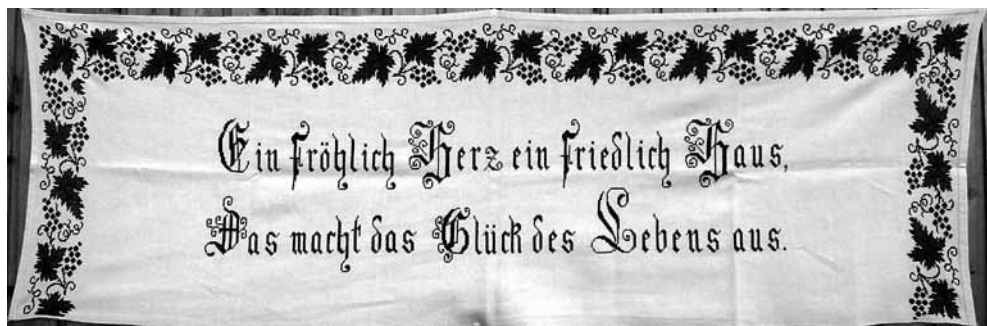 Ein fröhlich Herz ein friedlich Haus,
Das macht das Glück des Lebens aus.